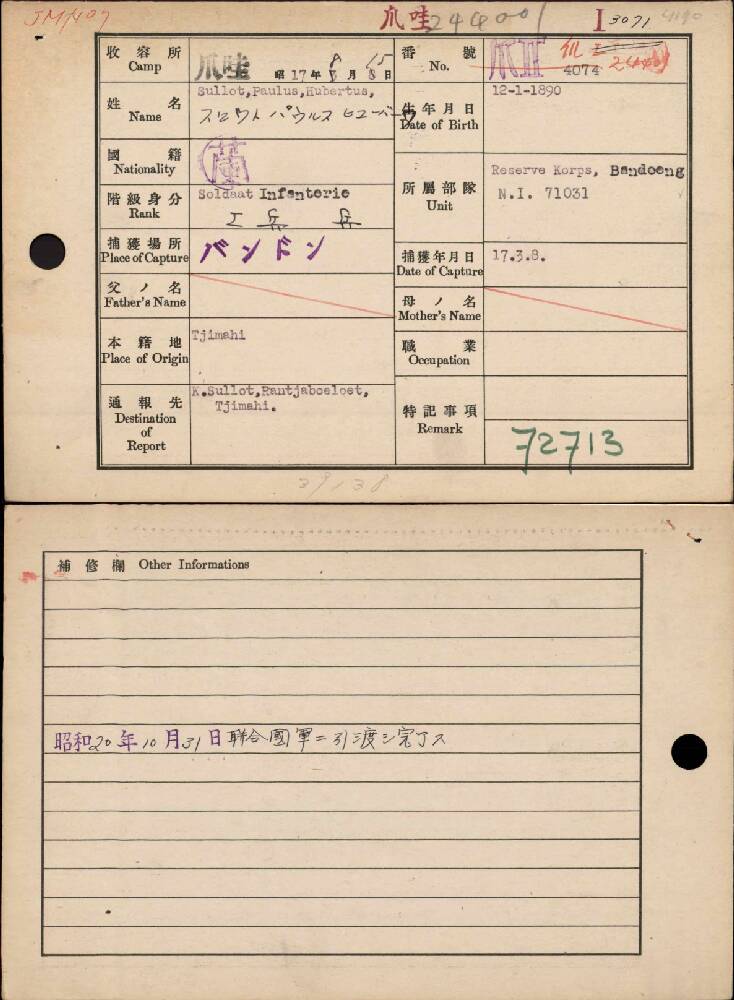 JM/107
爪哇 24400
I 3071
4190
收容所 Camp
爪哇 昭17年8月15日
番號 No.
爪II 4074
姓名 Name
Sullot,Paulus,Hubertus,
スロウト パウルス ヒユーバータ
生年月日 Date of Birth
12-1-1890
國籍 Nationality
蘭
階級身分 Rank
Soldaat Infanterie
所屬部隊 Unit
Reserve Korps, Bandoeng
N.I. 71031
捕獲場所 Place of Capture
バンドン
捕獲年月日 Date of Capture
17.3.8.
父ノ名 Father's Name
母ノ名 Mother's Name
本籍地 Place of Origin
Tjimahi
職業 Occupation
通報先 Destination of Report
K.Sullot,Rantjabceloet,
Tjimahi.
特記事項 Remark
72713
39138
補修欄 Other Informations
昭和20年10月31日聯合國軍ニ引渡シ完了ス